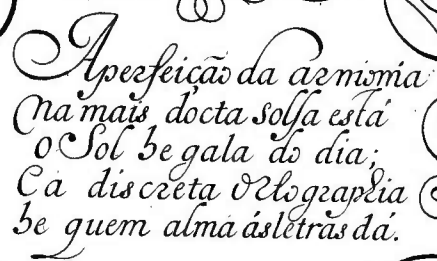 A perfeição da armonia
na mais docta solfa está
o Sol he gala do dia;
E a discreta Ortographia
he quem alma ás letras dá.